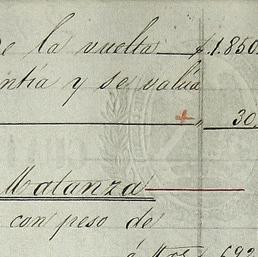 de la vuelta $ 1.850.
ntía y se valúa
+ " 30,
Matanza
con peso de
á Mrs. 692